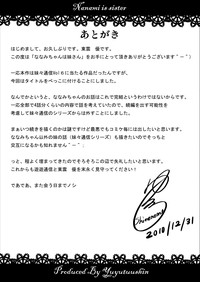 Nanami is sister
あとがき
はじめまして、お久しぶりです。東雲 優です。
この度は「ななみちゃんは妹さん」をお手にとって頂きありがとうございます＾－＾）
一応本作は妹々通信にも当たる作品だったんですが、
今回はタイトルをべっこに付けることにしました。
なんでかというと、ななみちゃんのお話はこれで完結というわけではないからです。
一応全部で4話分くらいの内容で話を考えていたので、続編を出す可能性を
考慮して妹々通信のシリーズからは外すことにしました。
まぁいつ続きを描くのかは謎ですけど最悪でもコミケ毎には出したいと思います。
ななみちゃん以外の妹の話（妹々通信シリーズ）も描きたいのでそっちと
交互になるかも知れません＾－＾）
っと、程よく埋まってきたのでそろそろこの辺で失礼したいと思います。
これからも遊遊通信と東雲 優を末永く見守ってください！
であであ、また会う日までノシ
Shinonome
2010/12/31
Produced By Yuyutuushin